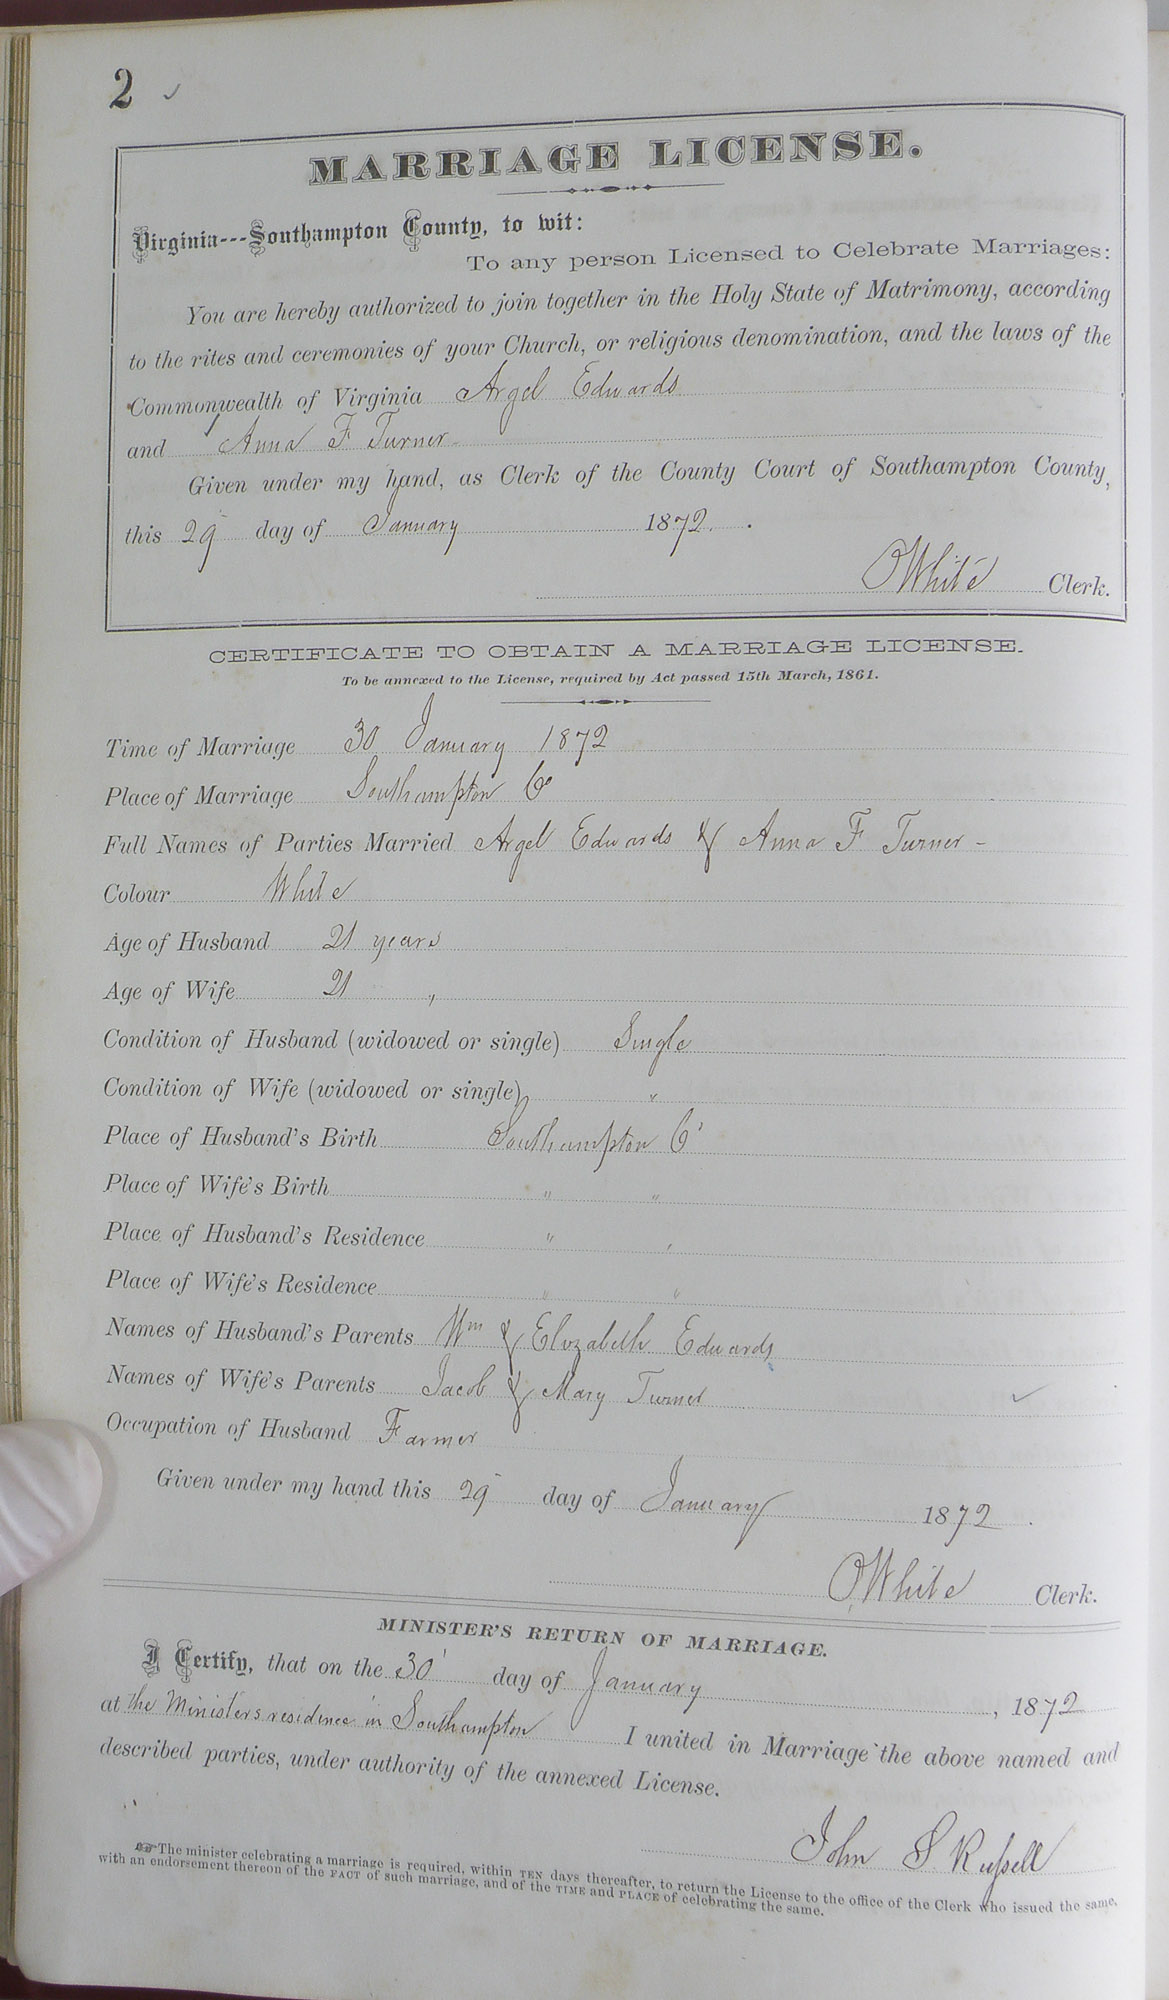 2 ✓
MARRIAGE LICENSE.
Virginia---Southampton County, to wit:
To any person Licensed to Celebrate Marriages:
You are hereby authorized to join together in the Holy State of Matrimony, according
to the rites and ceremonies of your Church, or religious denomination, and the laws of the
Commonwealth of Virginia Argel Edwards
and Anna F Turner
Given under my hand, as Clerk of the County Court of Southampton County,
this 29 day of January 1872.
O White Clerk.
CERTIFICATE TO OBTAIN A MARRIAGE LICENSE.
To be annexed to the License, required by Act passed 15th March, 1861.
Time of Marriage 30 January 1872
Place of Marriage Southampton Co
Full Names of Parties Married Argel Edwards & Anna F Turner -
Colour White
Age of Husband 21 years
Age of Wife 21 "
Condition of Husband (widowed or single) Single
Condition of Wife (widowed or single) "
Place of Husband's Birth Southampton Co
Place of Wife's Birth " "
Place of Husband's Residence " "
Place of Wife's Residence " "
Names of Husband's Parents Wm & Elizabeth Edwards
Names of Wife's Parents Jacob & Mary Turner ✓
Occupation of Husband Farmer
Given under my hand this 29 day of January 1872.
O White Clerk.
MINISTER'S RETURN OF MARRIAGE.
I Certify, that on the 30 day of January, 1872
at the Ministers residence in Southampton I united in Marriage the above named and
described parties, under authority of the annexed License.
John S. Russell
☞ The minister celebrating a marriage is required, within TEN days thereafter, to return the License to the office of the Clerk who issued the same,
with an endorsement thereon of the FACT of such marriage, and of the TIME and PLACE of celebrating the same.